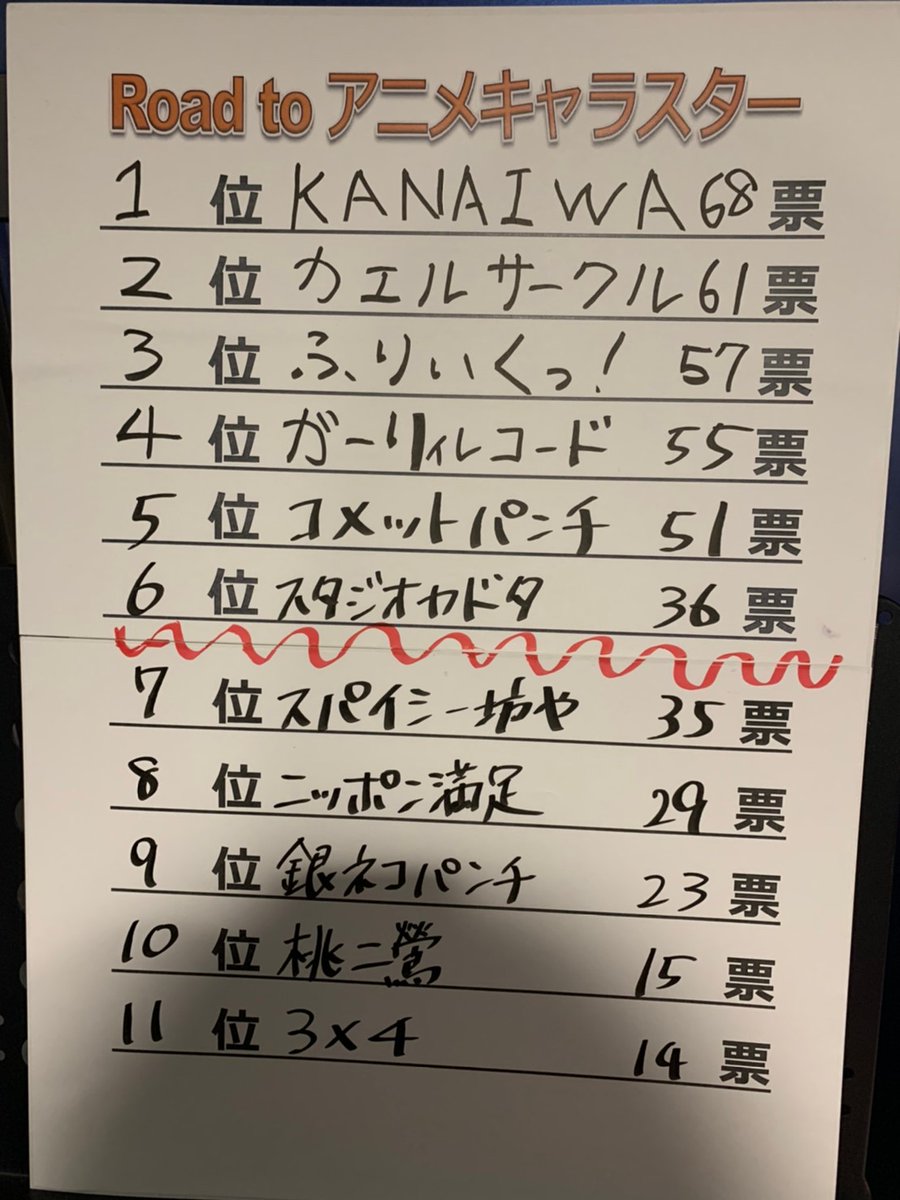 Road to アニメキャラスター
1 位 KANAIWA 68 票
2 位 カエルサークル 61 票
3 位 ふりぃくっ! 57 票
4 位 ガーリィレコード 55 票
5 位 コメットパンチ 51 票
6 位 スタジオカドタ 36 票
7 位 スパイシー坊や 35 票
8 位 ニッポン満足 29 票
9 位 銀ネコパンチ 23 票
10 位 桃二鶯 15 票
11 位 3×4 14 票